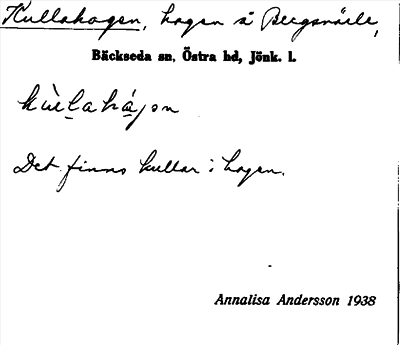 Kullahagen, hagen å Bergsnärle,
Bäckseda sn, Östra hd, Jönk. l.
kùl̲ahá̲gən
Det finns kullar i hagen.
Annalisa Andersson 1938